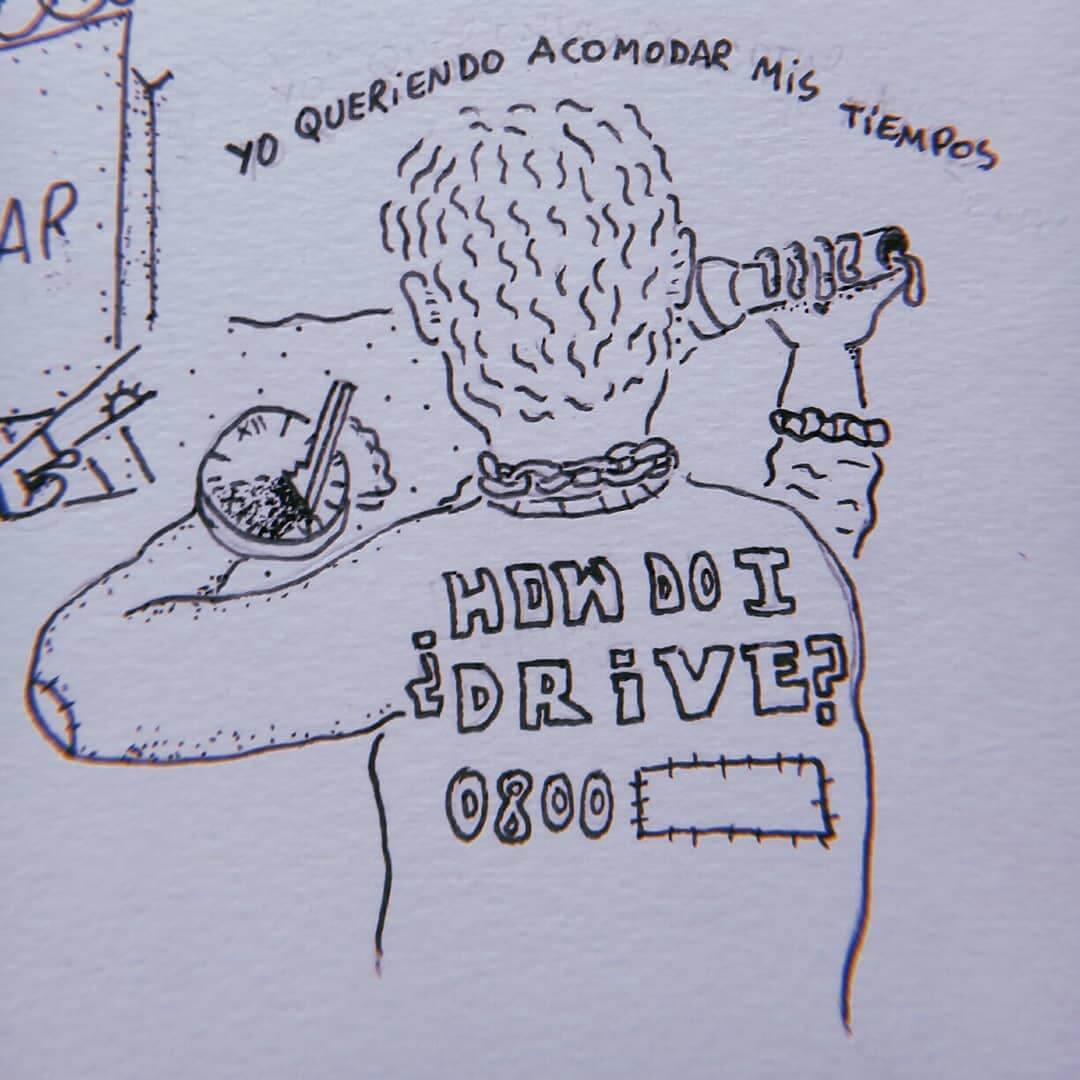 YO QUERiENDO ACOMODAR MiS TiEMPOS
AR
XII
HOW DO I
¿DRiVE?
0800